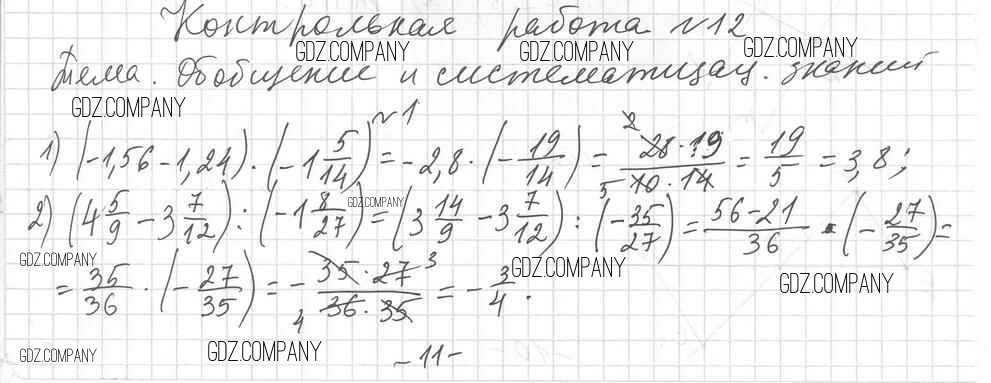 Контрольная работа №12
GDZ.COMPANY GDZ.COMPANY GDZ.COMPANY
Тема. Обобщение и систематизац. знаний
GDZ.COMPANY
№1
1) (-1,56-1,24)·(-1 5/14) = -2,8·(-19/14) = 28·19/10·14 = 19/5 = 3,8;
2) (4 5/9 - 3 7/12) : (-1 8/27) = (3 14/9 - 3 7/12) : (-35/27) = 56-21/36 · (-27/35) =
GDZ.COMPANY
GDZ.COMPANY GDZ.COMPANY GDZ.COMPANY
= 35/36 · (-27/35) = - 35·27/36·35 = - 3/4.
GDZ.COMPANY GDZ.COMPANY
-11-